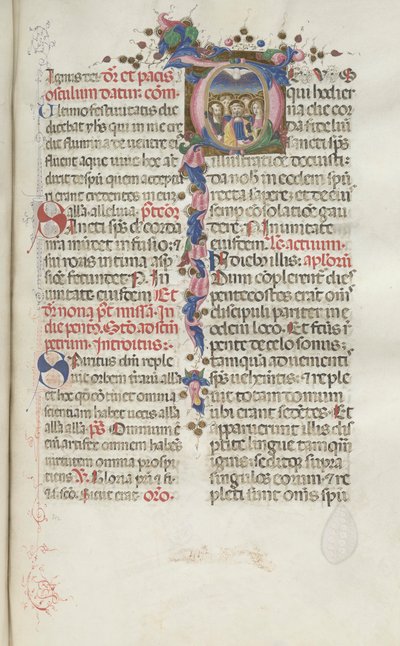 Agnus dei. Dr̄ et pacis
osculum datur. Com̄.
Ultimo festivitatis die
dicebat yhs qui in me cre
dit flumina de ventre ei'
fluent aque vive hoc aūt
dixit de spū quem accepturi
erant credentes in eum
alla alleluia. P̄tcōr
Sancti sp̄s dn̄e corda
nr̄a mūdet infusio; ⁊
sui roris intīa asp̄
sione fecundet. P. In
unitate eiusdem. Et
dr̄ nona post missā. In
die penth̄. Stō ad scm̄
petrum. Introitus.
Spiritus dn̄i reple
vit orbem t̄raru alla
et hoc qd̄ cōtinet omnia
scientiam habet vocis alla
alla alla. p̄s. Omnium e
nim artifex omnem habēs
virtutem omnia prospi
ciens. V. Gloria pr̄i ⁊ fi
lio ⁊ scō. Sicut erat. Oro.
DEUS
qui hodier
na die cor
da fidelium
sancti sp̄s
illustratione docuisti
da nob̄ in eodem spū
recta sapē; et de ei'
semp̄ cōsolatiōe gau
dere. P. In unitate
eiusdem. Lc̄ actuum
In dieb̄ illis: aplōrū
Dum complerent dies
pentecostes erāt om̄s
discipuli pariter in e
odem loco. Et fc̄us ē
repente de celo sonus
tamquā advenientis
sp̄s vehemētis: et reple
vit totam domum
ubi erant sedētes. Et
apparuerunt illis dis
ptite lingue tamquā
ignis: seditq̄ supra
singulos eorum: et re
pleti sunt om̄s spū